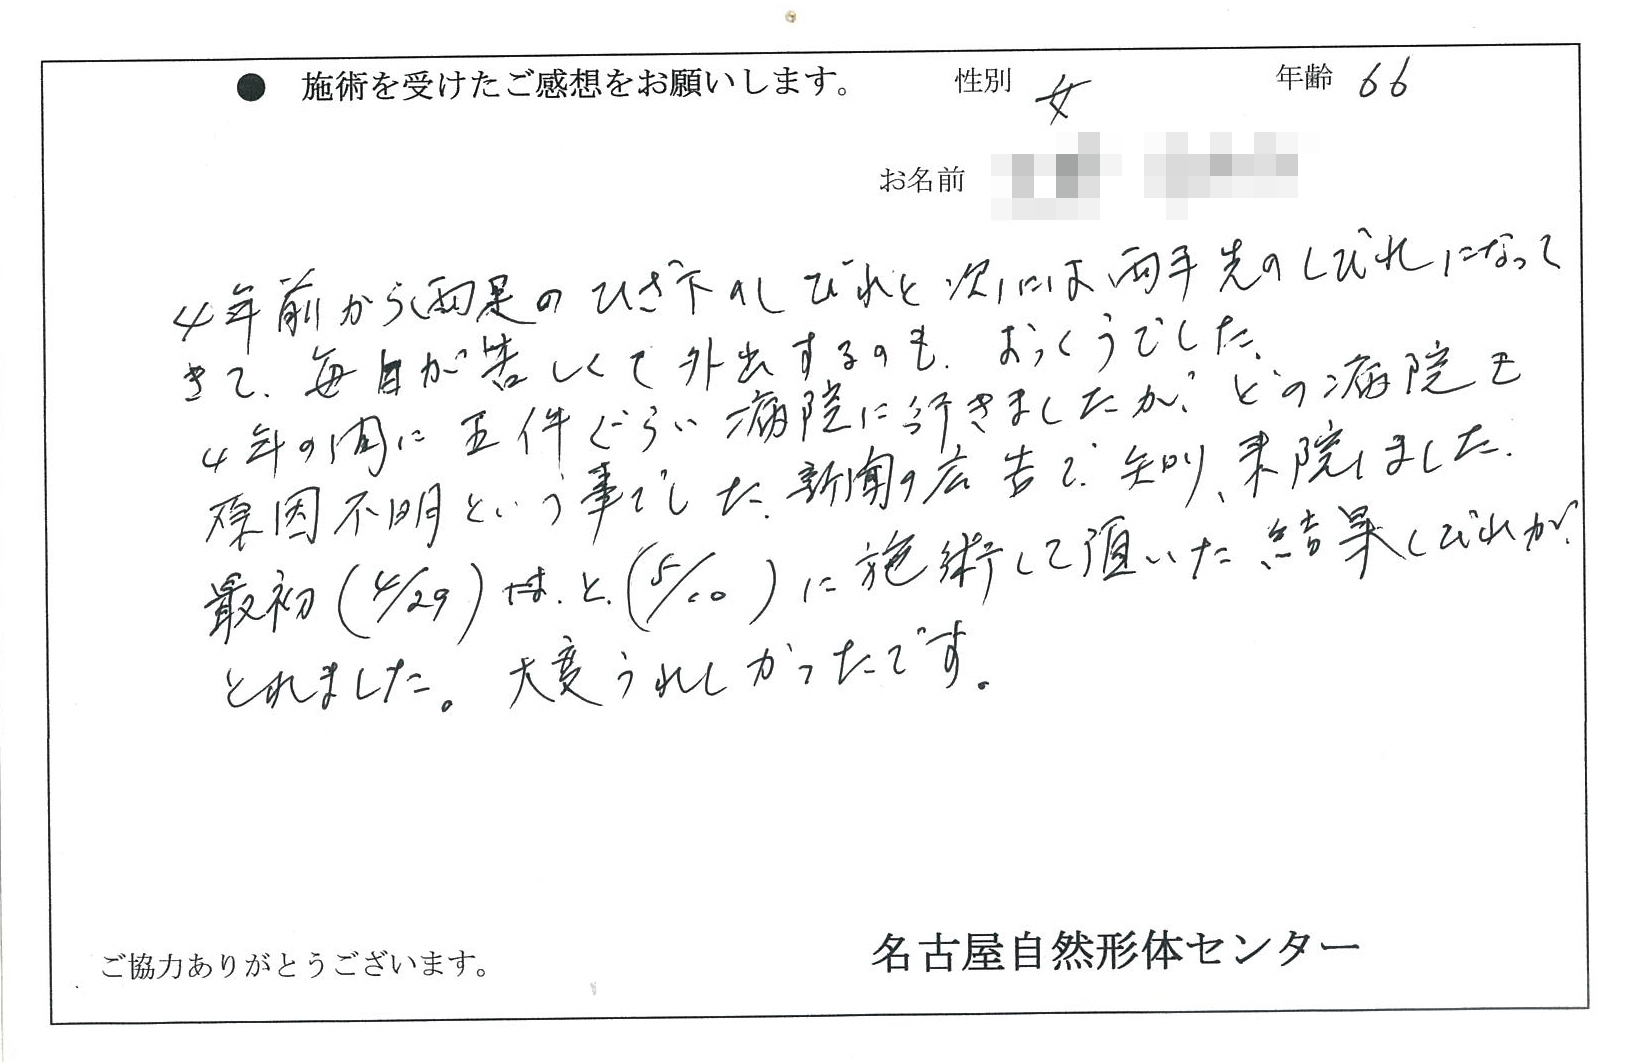 ● 施術を受けたご感想をお願いします。 性別 女 年齢 66
お名前
4年前から両足のひざ下のしびれと次には両手先のしびれになって
きて、毎日が苦しくて外出するのも、おっくうでした、
4年の間に五件ぐらい病院に行きましたが、どの病院も
原因不明という事でした、新聞の広告で、知り、来院しました、
最初(4/29)は、と、(5/10)に施術して頂いた結果しびれが、
とれました。大変うれしかったです。
ご協力ありがとうございます。
名古屋自然形体センター